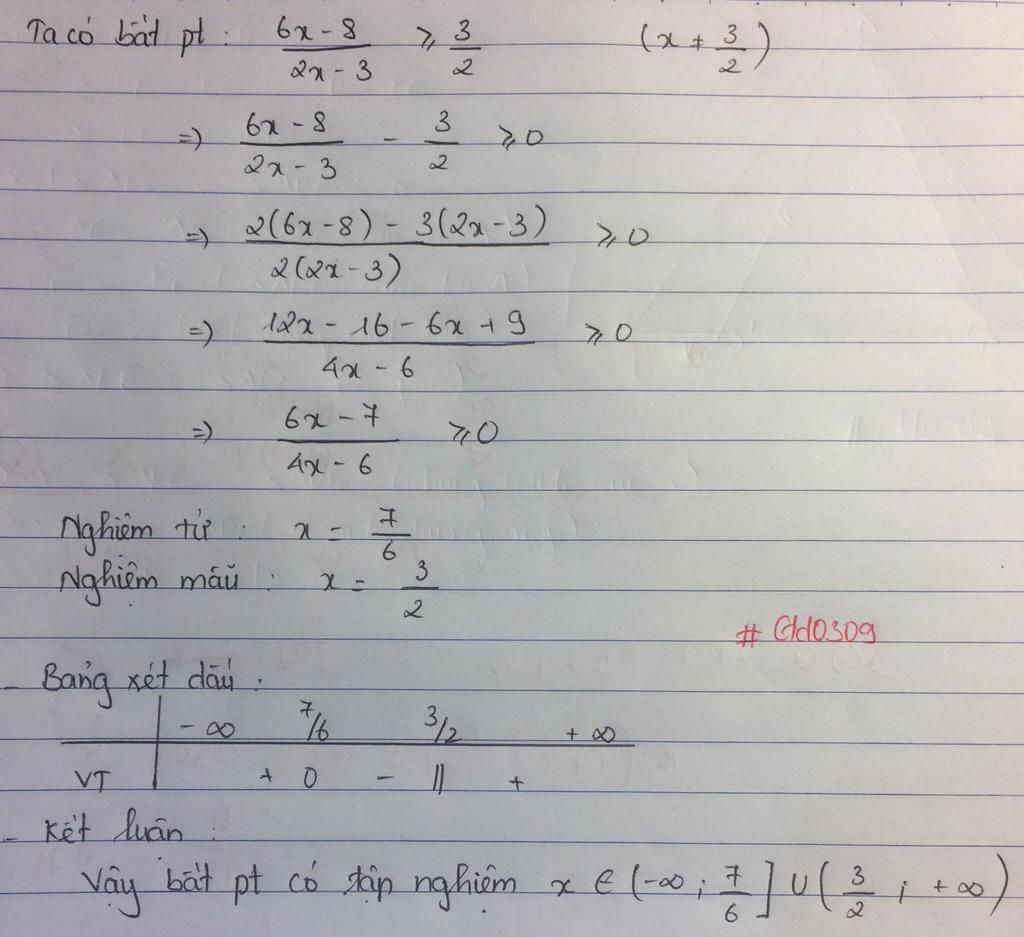 Ta có bất pt : (6x - 8)/(2x - 3) ≥ 3/2 (x ≠ 3/2)
=) (6x - 8)/(2x - 3) - 3/2 ≥ 0
=) (2(6x - 8) - 3(2x - 3))/(2(2x - 3)) ≥ 0
=) (12x - 16 - 6x + 9)/(4x - 6) ≥ 0
=) (6x - 7)/(4x - 6) ≥ 0
Nghiệm tử : x = 7/6
Nghiệm mẫu : x = 3/2
- Bảng xét dấu :
-∞ 7/6 3/2 +∞
VT + 0 - || +
- Kết luận :
Vậy bất pt có tập nghiệm x ∈ (-∞ ; 7/6] ∪ (3/2 ; +∞)